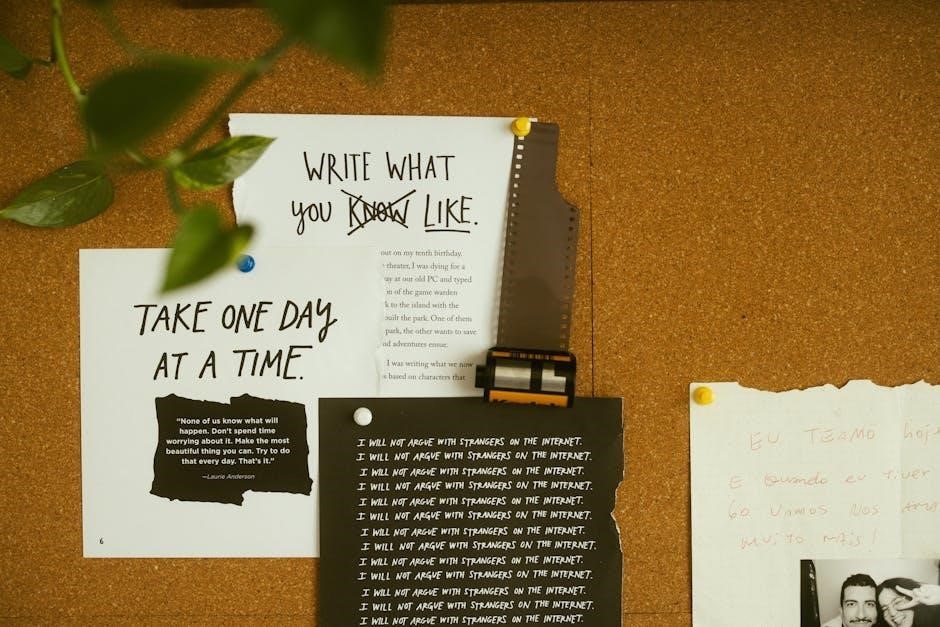 WRITE WHAT
YOU KNOW LIKE.
out on my tenth birthday.
theater, I was dying for a
ay at our old PC and typed
on of the game warden
k to the island with the
built the park. One of them
park, the other wants to save
nd adventures ensue.
I was writing what we now
s based on characters that
TAKE ONE DAY
AT A TIME.
“None of us know what will
happen. Don’t spend time
worrying about it. Make the most
beautiful thing you can. Try to do
that every day. That’s it.”
—Laurie Anderson
6
I WILL NOT ARGUE WITH STRANGERS ON THE INTERNET.
I WILL NOT ARGUE WITH STRANGERS ON THE INTERNET.
I WILL NOT ARGUE WITH STRANGERS ON THE INTERNET.
I WILL NOT ARGUE WITH STRANGERS ON THE INTERNET.
I WILL NOT ARGUE WITH STRANGERS ON THE INTERNET.
I WILL NOT ARGUE WITH STRANGERS ON THE INTERNET.
I WILL NOT ARGUE WITH STRANGERS ON THE INTERNET.
I WILL NOT ARGUE WITH STRANGERS ON THE INTERNET.
I WILL NOT ARGUE WITH STRANGERS ON THE INTERNET.
I WILL NOT ARGUE WITH STRANGERS ON THE INTERNET.
I WILL NOT ARGUE WITH STRANGERS ON THE INTERNET.
I WILL NOT ARGUE WITH STRANGERS ON THE INTERNET.
I WILL NOT ARGUE WITH STRANGERS ON THE INTERNET.
EU TEAMO hoje
E Quando eu tiver
60 VAMOS NOS
MUITO MAIS!